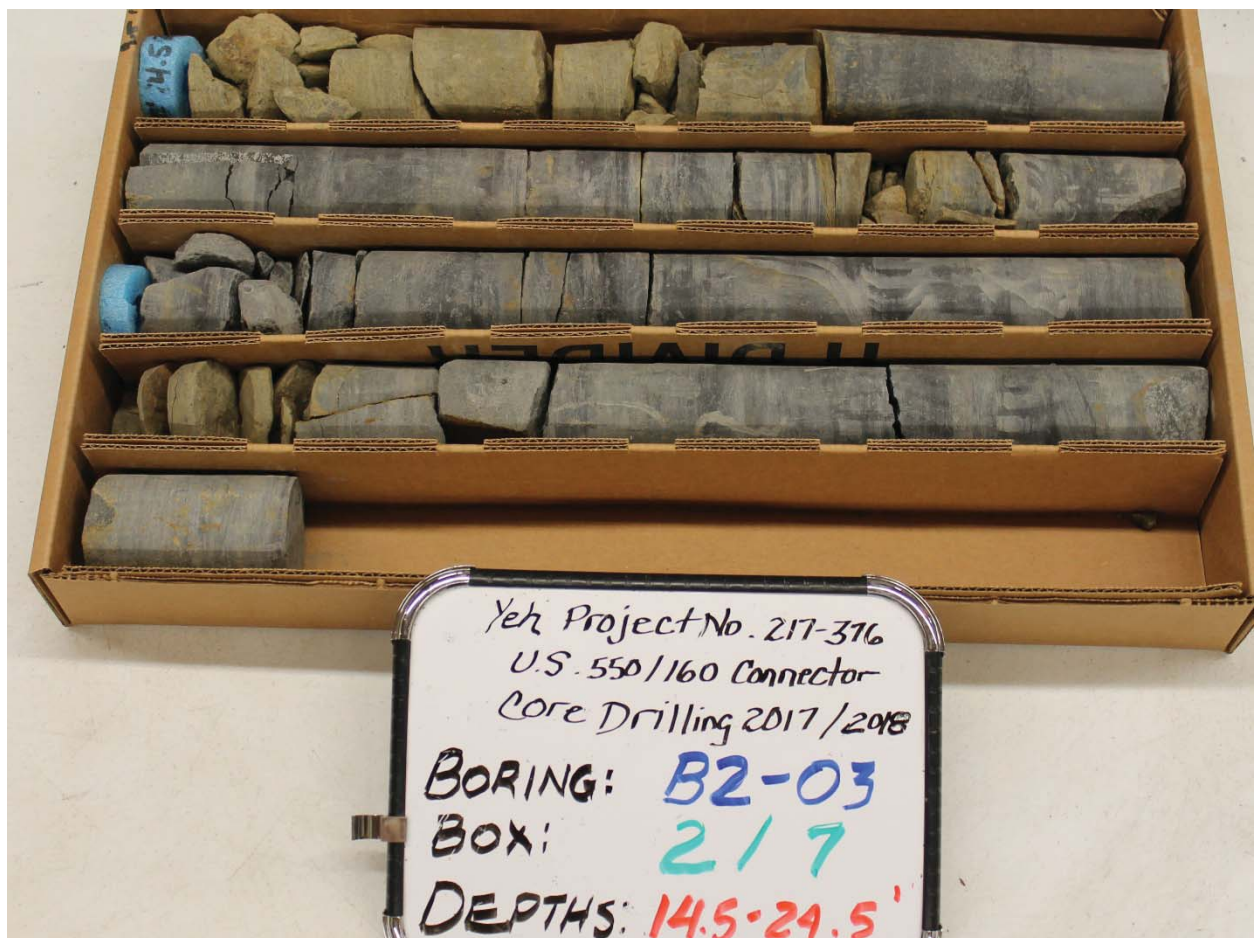 14.5
Yeh Project No. 217-376
U.S. 550/160 Connector
Core Drilling 2017/2018
BORING: B2-03
BOX: 2/7
DEPTHS: 14.5-24.5'